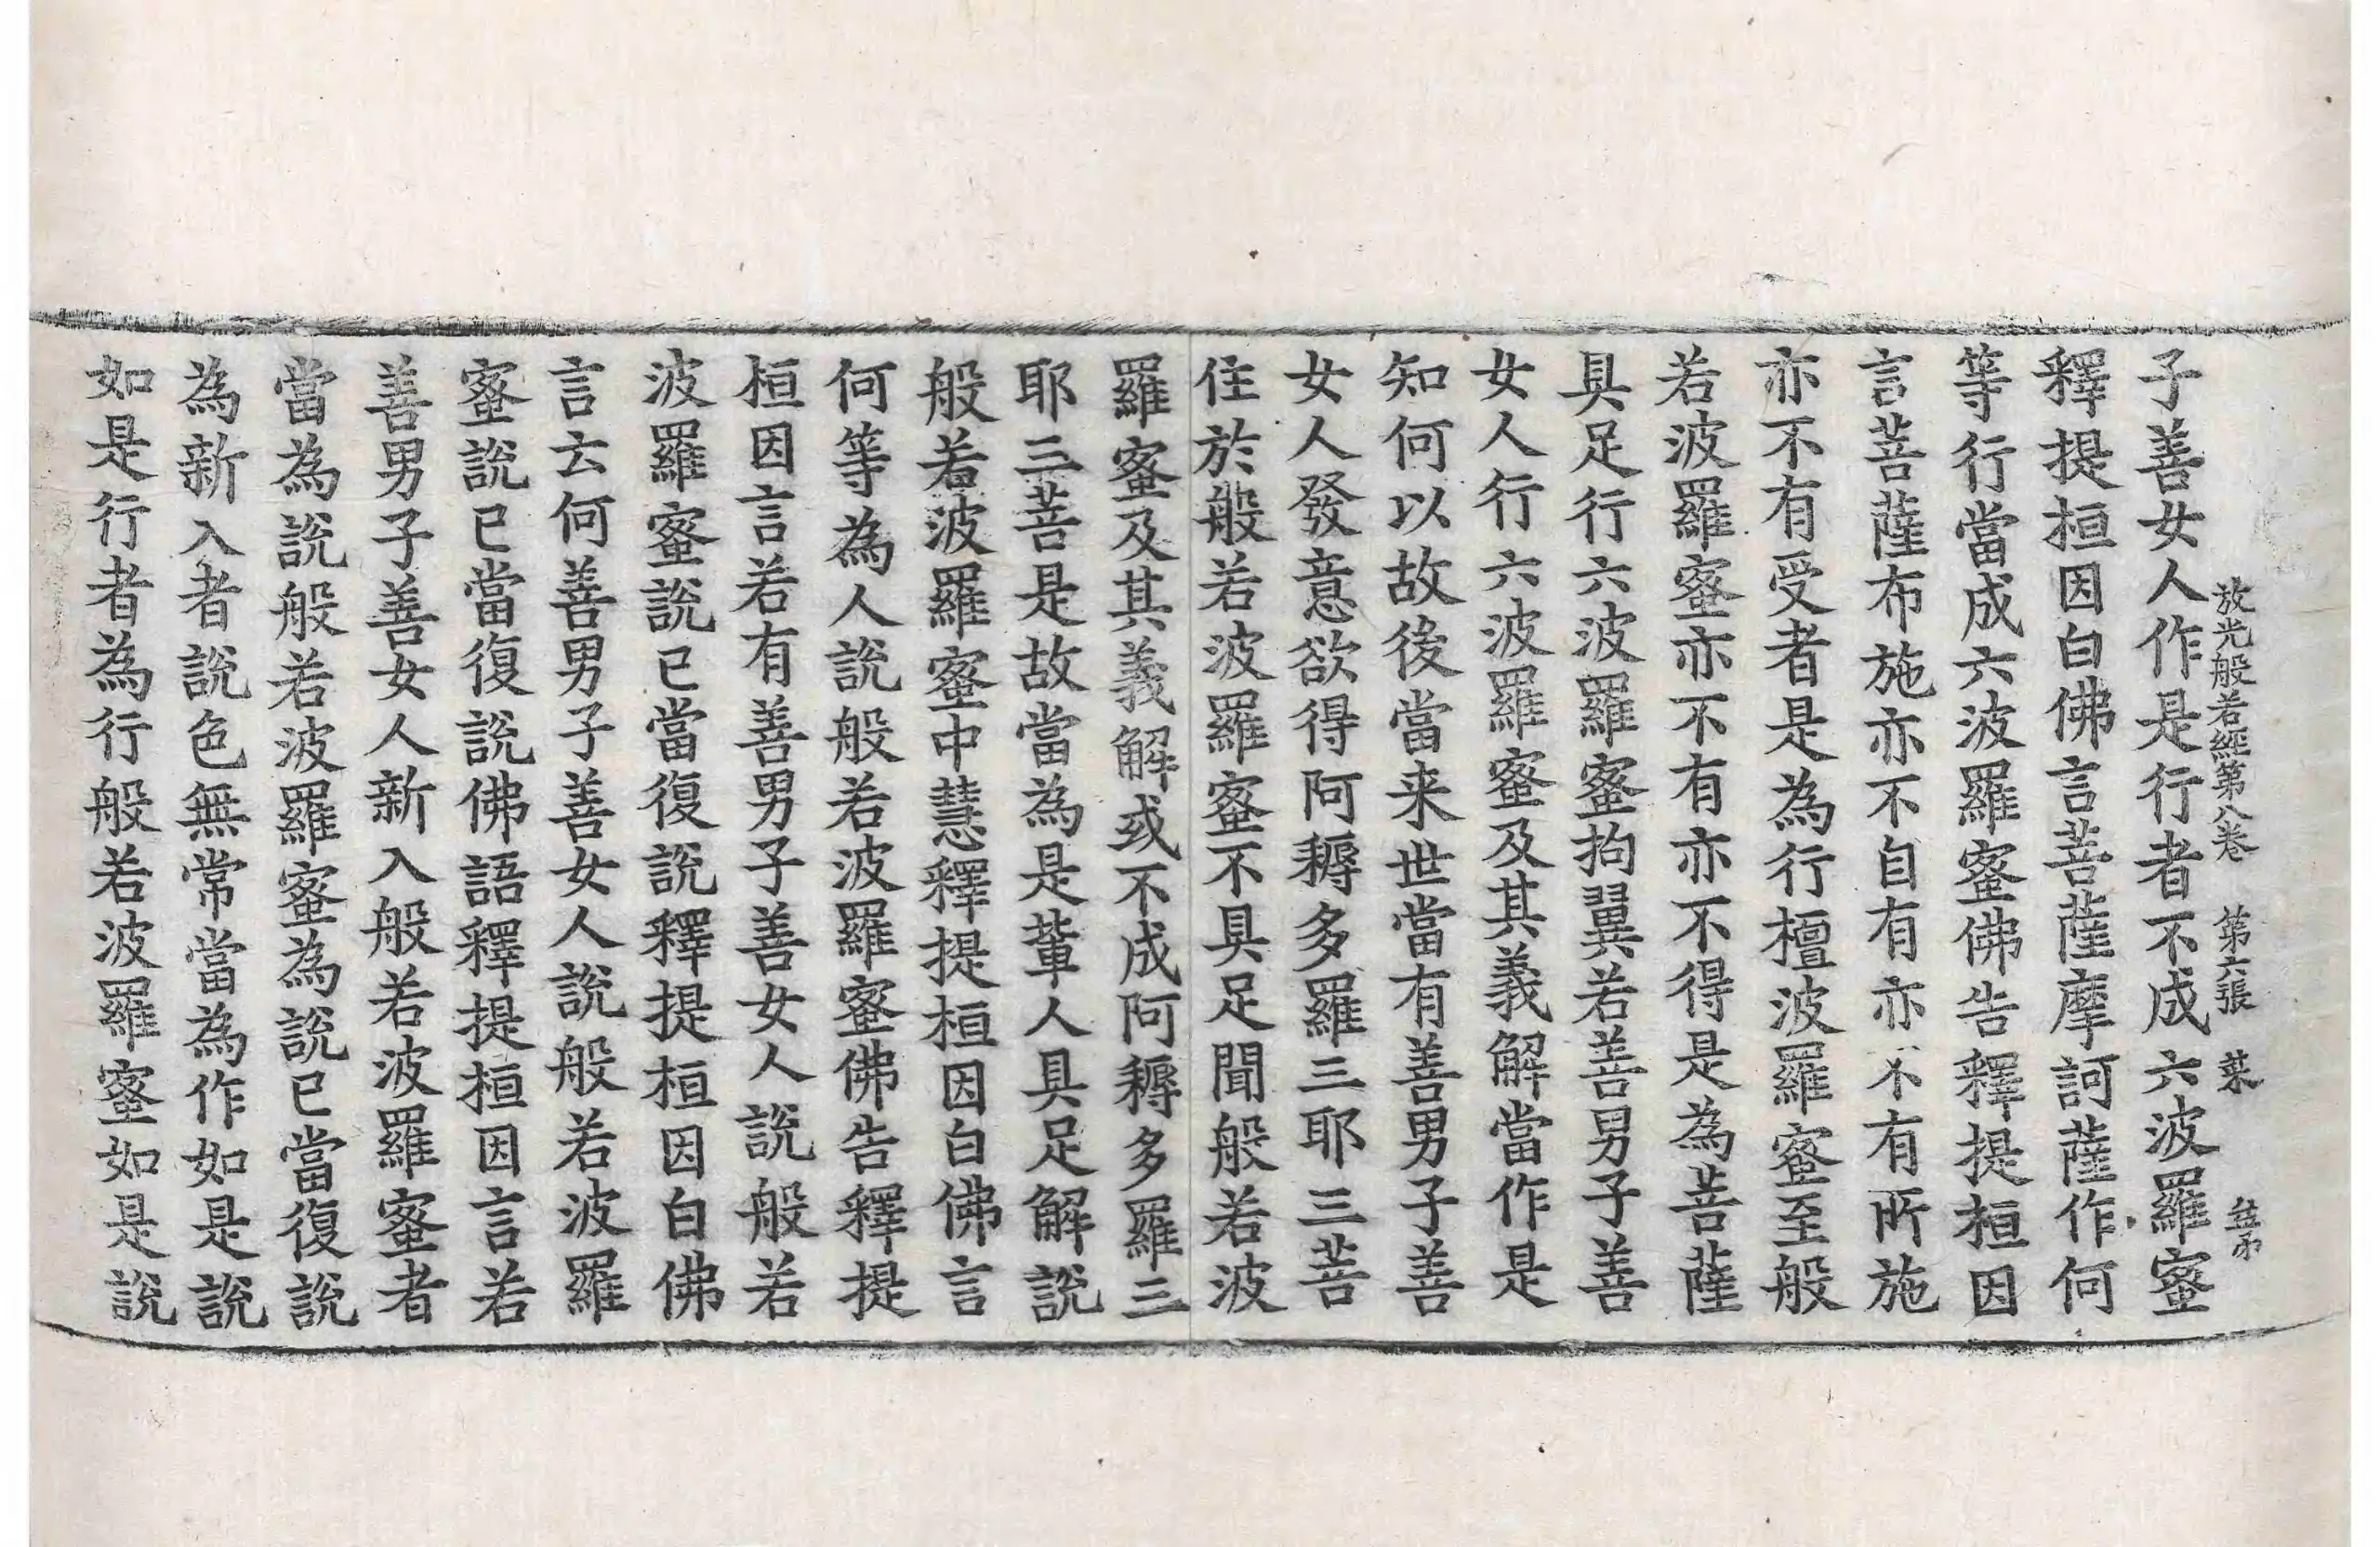 放光般若經第八卷　第六張　菜
子善女人作是行者不成六波羅蜜
釋提桓因白佛言菩薩摩訶薩作何
等行當成六波羅蜜佛告釋提桓因
言菩薩布施亦不自有亦不有所施
亦不有受者是為行檀波羅蜜至般
若波羅蜜亦不有亦不得是為菩薩
具足行六波羅蜜拘翼若善男子善
女人行六波羅蜜及其義解當作是
知何以故後當来世當有善男子善
女人發意欲得阿耨多羅三耶三菩
住於般若波羅蜜不具足聞般若波
羅蜜及其義解或不成阿耨多羅三
耶三菩是故當為是輩人具足解說
般若波羅蜜中慧釋提桓因白佛言
何等為人說般若波羅蜜佛告釋提
桓因言若有善男子善女人說般若
波羅蜜說已當復說釋提桓因白佛
言云何善男子善女人說般若波羅
蜜說已當復說佛語釋提桓因言若
善男子善女人新入般若波羅蜜者
當為說般若波羅蜜為說已當復說
為新入者說色無常當為作如是說
如是行者為行般若波羅蜜如是說